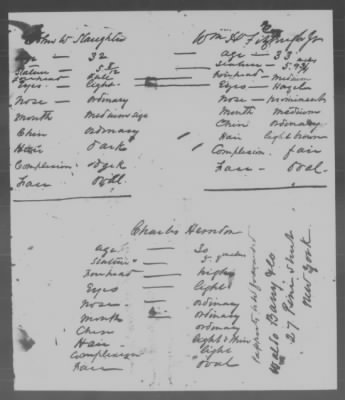 John W Slaughter
age — 32
Stature — 5.8 1/2
Forehead — full
Eyes — light
Nose — ordinary
Mouth medium size
Chin ordinary
Hair dark
Complexion dark
Face oval
Wm H Fitzhugh Jr
age — 33
Stature — 5.9 3/4
Forehead — medium
Eyes — Hazel
Nose — prominent
Mouth medium
Chin ordinary
Hair light brown
Complexion fair
Face — oval
Charles Herndon
age — 30
Stature — 5.
Forehead — high
Eyes — light
Nose — ordinary
Mouth — ordinary
Chin ordinary
Hair — light & thin
Complexion light
Face oval
Passports to be forwarded
Waldo Barry & Co
27 Pine Street
New York